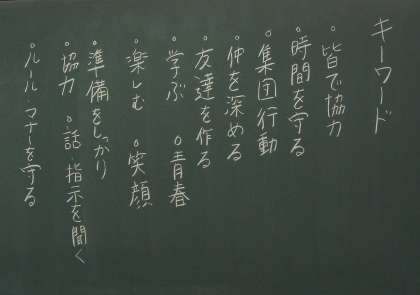 キーワード
・皆で協力
・時間を守る
・集団行動
・仲を深める
・友達を作る
・学ぶ ・青春
・楽しむ ・笑顔
・準備をしっかり
・協力 ・話・指示を聞く
・ルール・マナーを守る